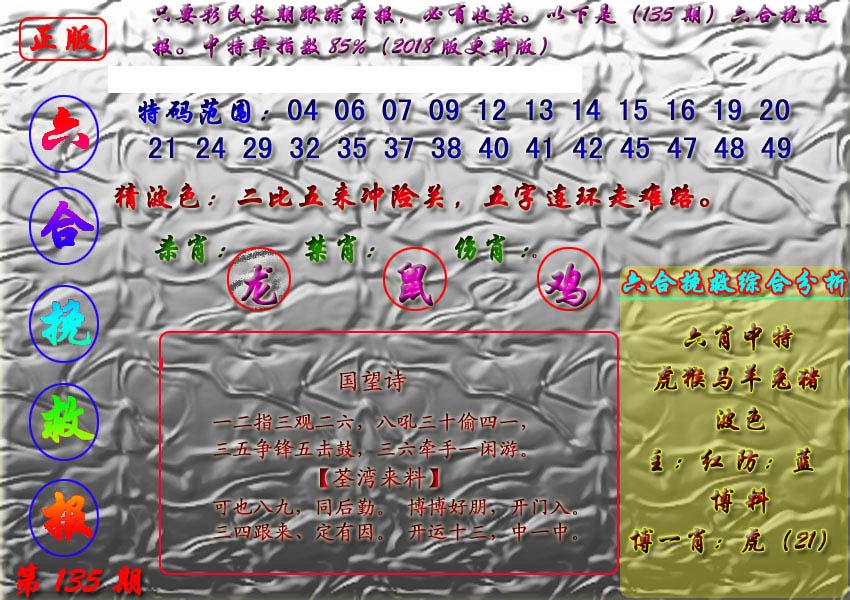 正版
只要彩民长期跟踪本报，必有收获。以下是（135期）六合挽救
报。中特率指数85%（2018版更新版）
六合挽救报
特码范围：04 06 07 09 12 13 14 15 16 19 20
21 24 29 32 35 37 38 40 41 42 45 47 48 49
猜波色：二比五来冲险关，五字连环走难路。
杀肖：龙 禁肖：鼠 伤肖：鸡。
国望诗
一二指三观二六，八吼三十偷四一，
三五争锋五击鼓，三六牵手一闲游。
【荃湾来料】
可也八九，同后勤。 博博好朋，开门入。
三四跟来、定有因。 开运十三，中一中。
六合挽救综合分析
六肖中特
虎猴马羊兔猪
波色
主：红防：蓝
博料
博一肖：虎（21）
第135期